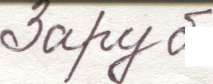 Заруб